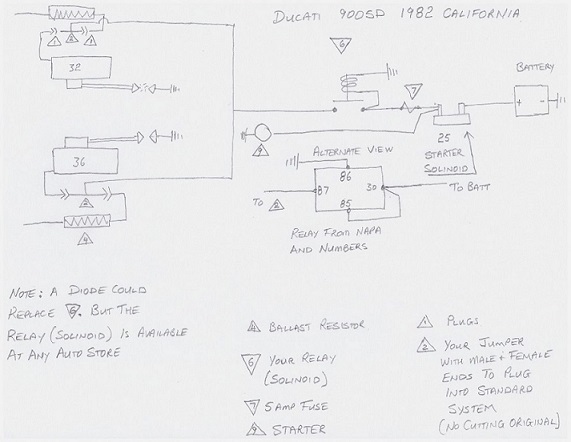 DUCATI 900SD 1982 CALIFORNIA
4
1 2 1
32
6
7
BATTERY
+ -
9
25
STARTER
SOLINOID
ALTERNATE VIEW
86
87 30
85
TO 2
TO BATT
RELAY FROM NAPA
AND NUMBERS
36
2
4
NOTE: A DIODE COULD
REPLACE 6. BUT THE
RELAY (SOLINOID) IS AVAILABLE
AT ANY AUTO STORE
4 BALLAST RESISTOR
6 YOUR RELAY
(SOLINOID)
7 5AMP FUSE
9 STARTER
1 PLUGS
2 YOUR JUMPER
WITH MALE + FEMALE
ENDS TO PLUG
INTO STANDARD
SYSTEM
(NO CUTTING ORIGINAL)